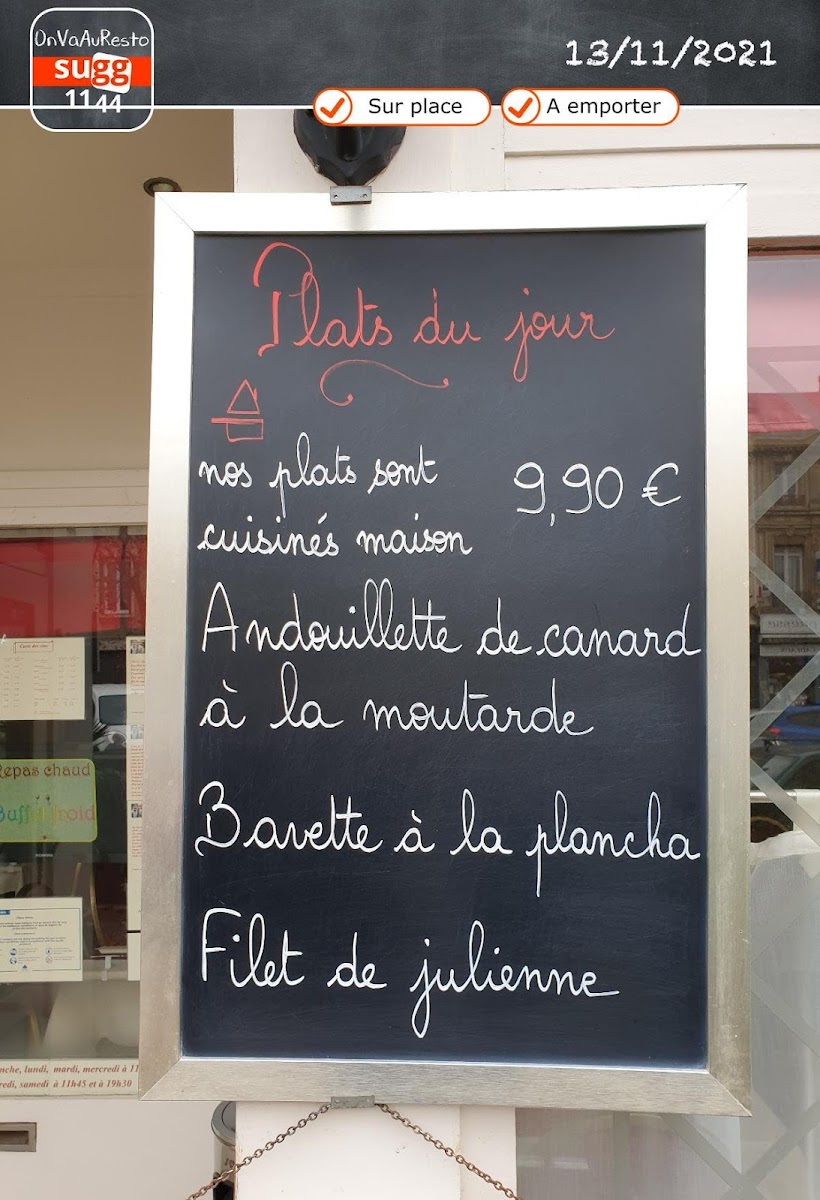 OnVaAuResto
sugg
11 44
13/11/2021
Sur place
A emporter
Plats du jour
nos plats sont
cuisinés maison
9,90 €
Andouillette de canard
à la moutarde
Bavette à la plancha
Filet de julienne
Repas chaud
Buffet froid
nche, lundi, mardi, mercredi à 11
redi, samedi à 11h45 et à 19h30